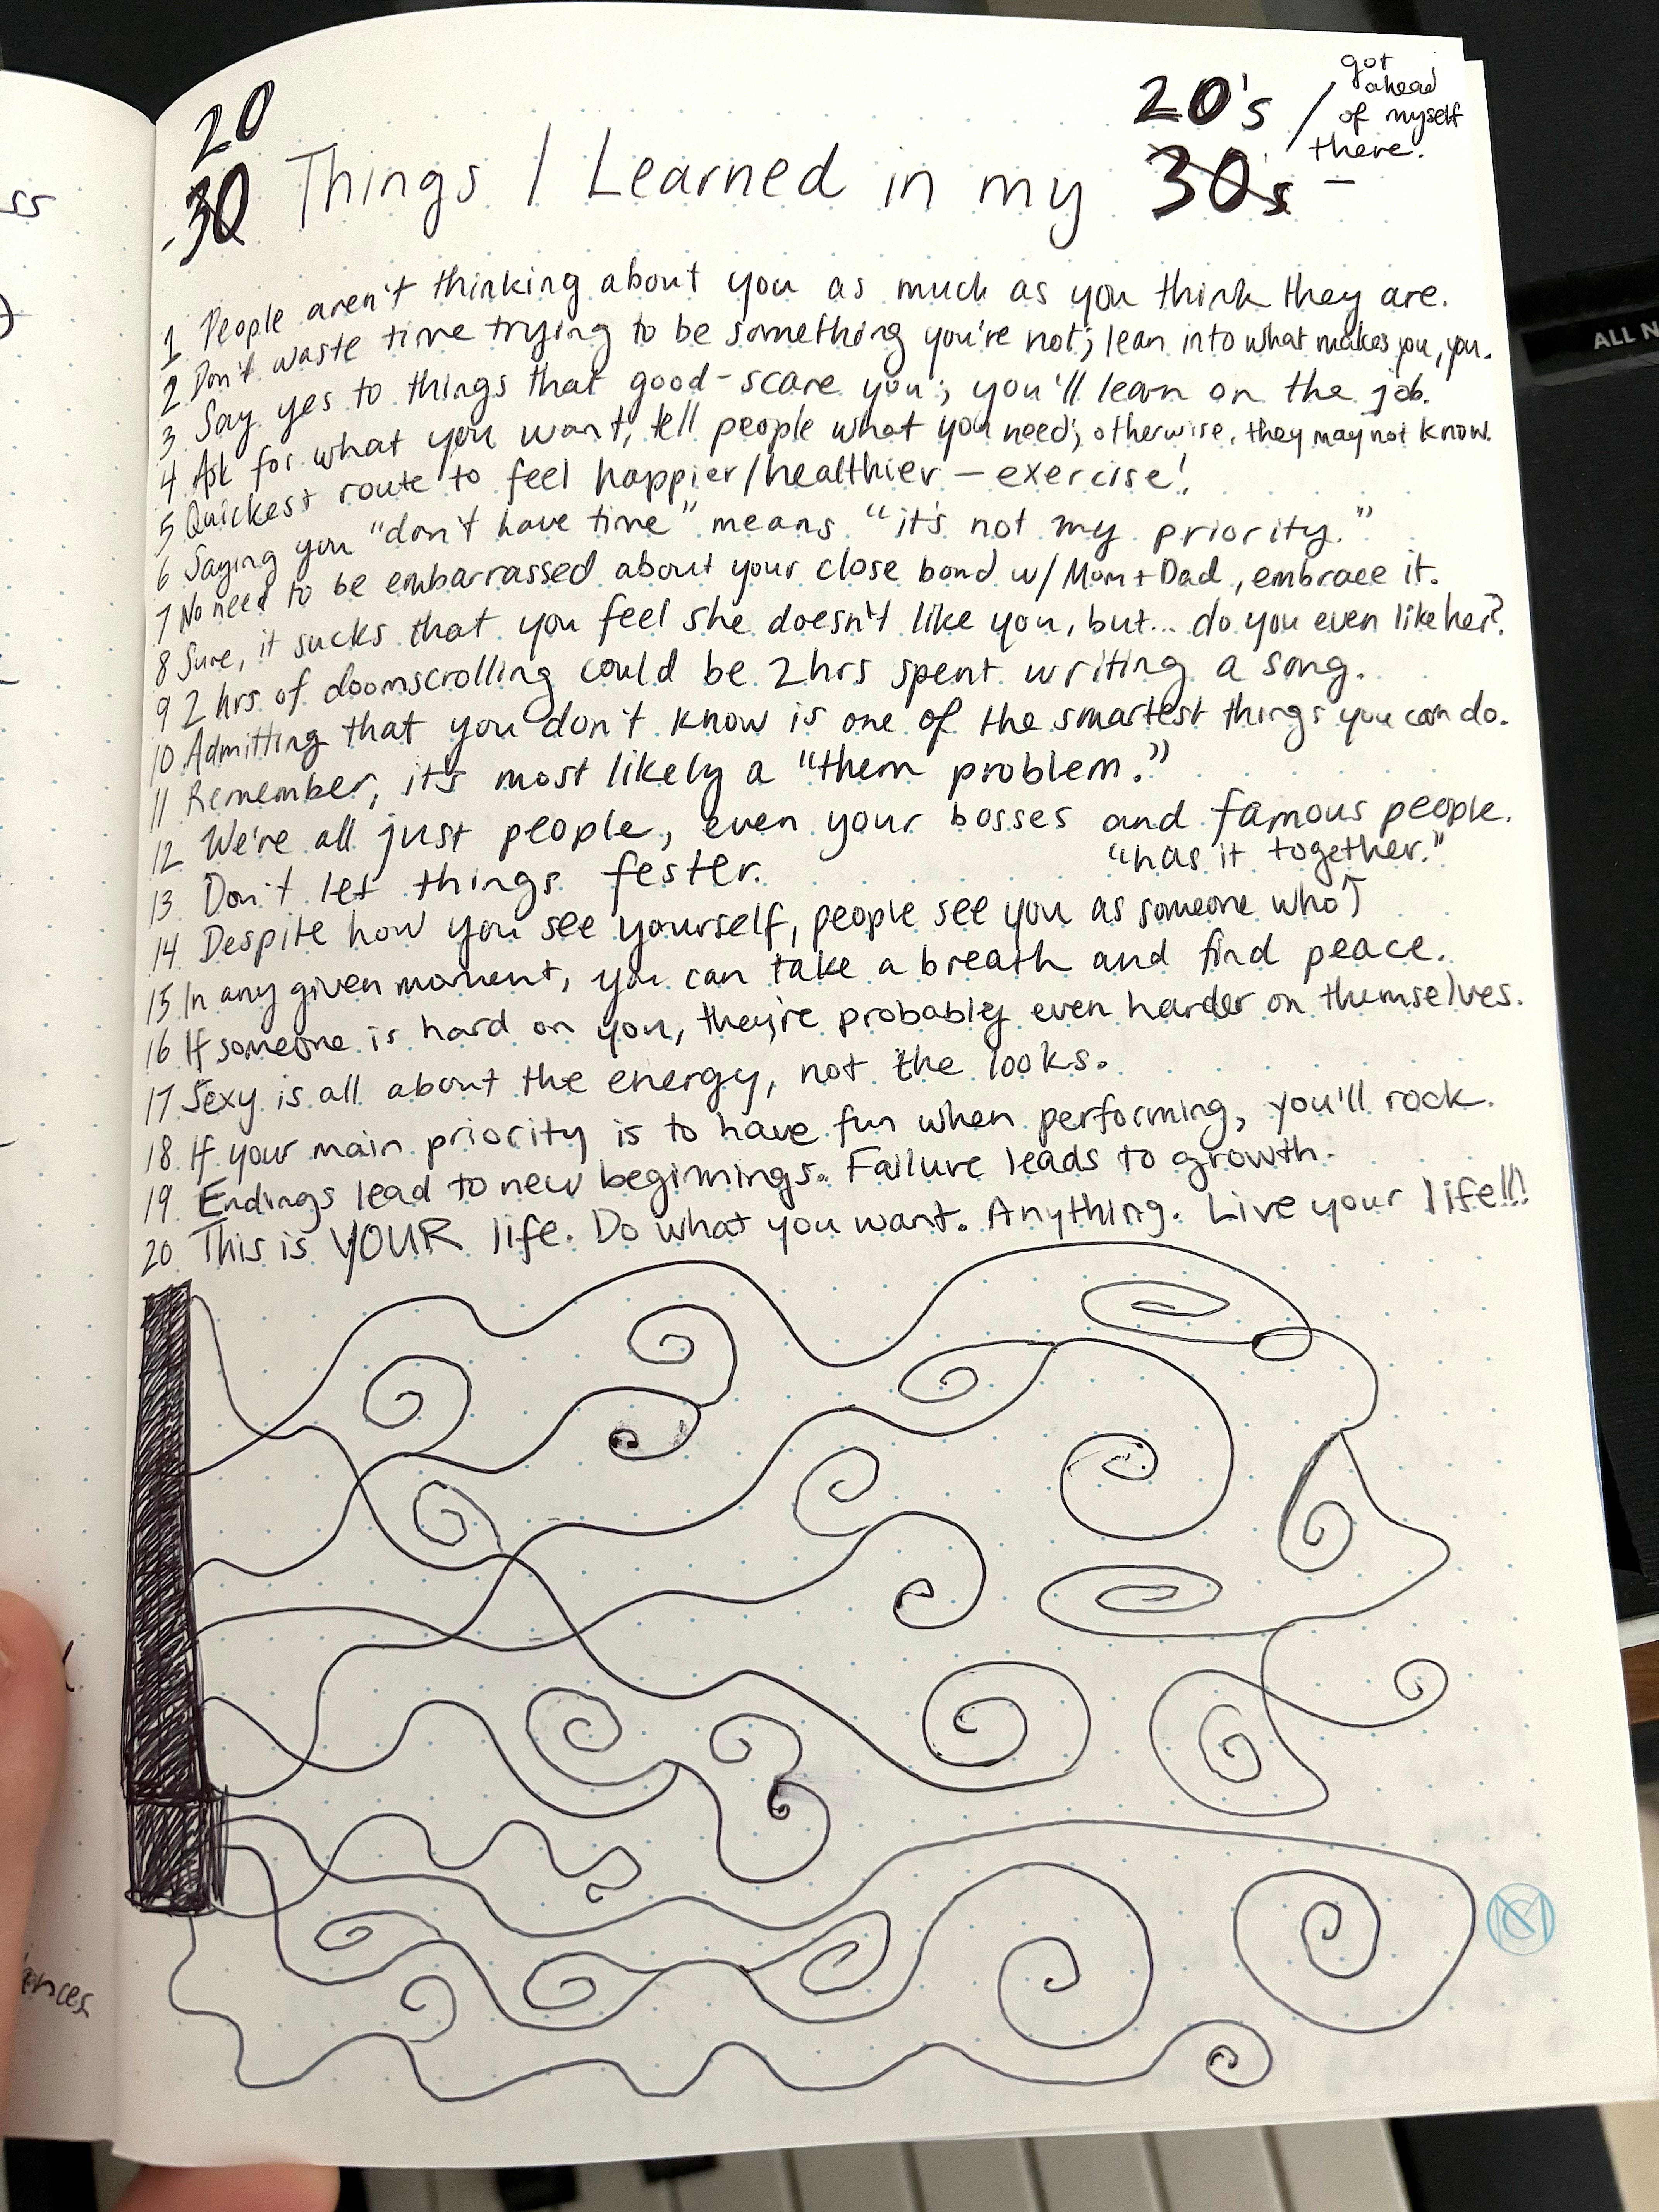 20
30 Things I Learned in my 30s
20's / got ahead of myself there!
1 People aren't thinking about you as much as you think they are.
2 Don't waste time trying to be something you're not; lean into what makes you, you.
3 Say yes to things that good-scare you; you'll learn on the job.
4 Ask for what you want, tell people what you need; otherwise, they may not know.
5 Quickest route to feel happier/healthier - exercise!
6 Saying you "don't have time" means "it's not my priority."
7 No need to be embarrassed about your close bond w/ Mom + Dad, embrace it.
8 Sure, it sucks that you feel she doesn't like you, but... do you even like her?
9 2 hrs of doomscrolling could be 2 hrs spent writing a song.
10 Admitting that you don't know is one of the smartest things you can do.
11 Remember, it's most likely a "them problem."
12 We're all just people, even your bosses and famous people.
13 Don't let things fester.
14 Despite how you see yourself, people see you as someone who "has it together."
15 In any given moment, you can take a breath and find peace.
16 If someone is hard on you, they're probably even harder on themselves.
17 Sexy is all about the energy, not the looks.
18 If your main priority is to have fun when performing, you'll rock.
19 Endings lead to new beginnings. Failure leads to growth.
20 This is YOUR life. Do what you want. Anything. Live your life!!!
ss
ences
ALL N